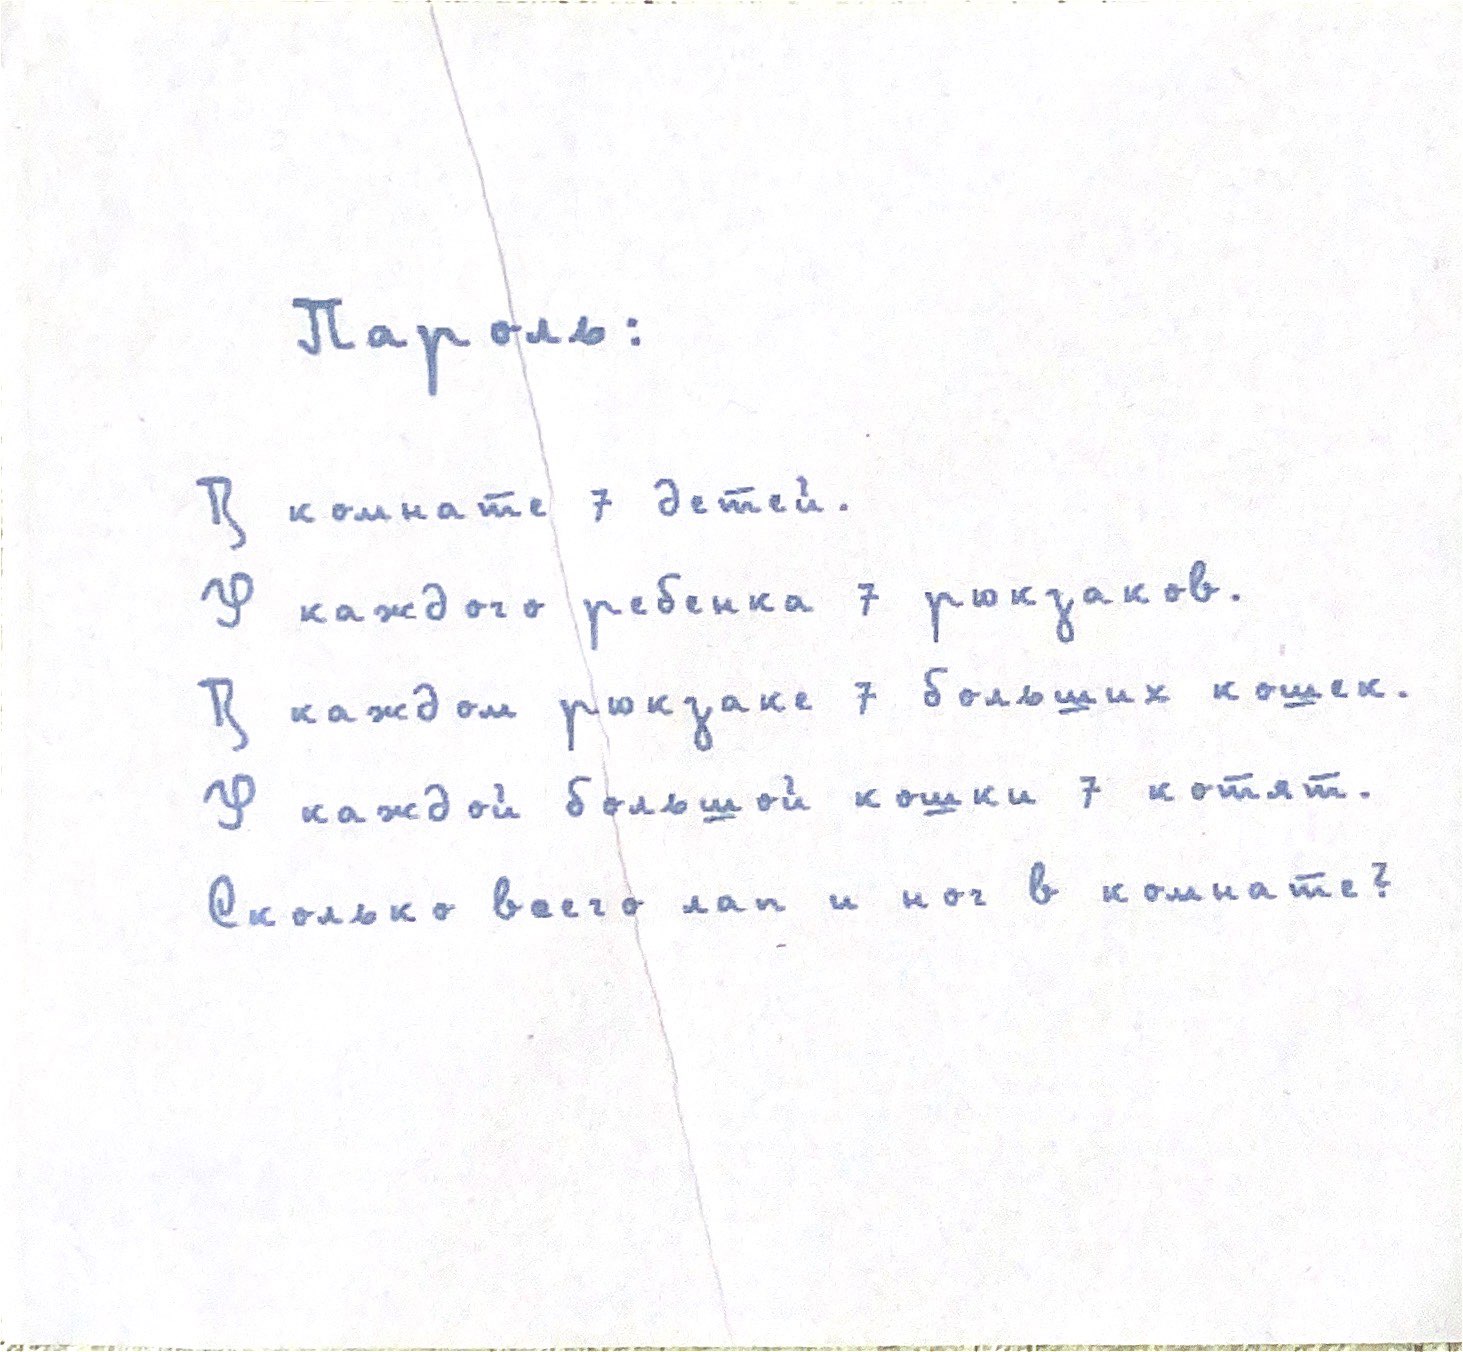 Пароль:
В комнате 7 детей.
У каждого ребенка 7 рюкзаков.
В каждом рюкзаке 7 больших кошек.
У каждой большой кошки 7 котят.
Сколько всего лап и ног в комнате?